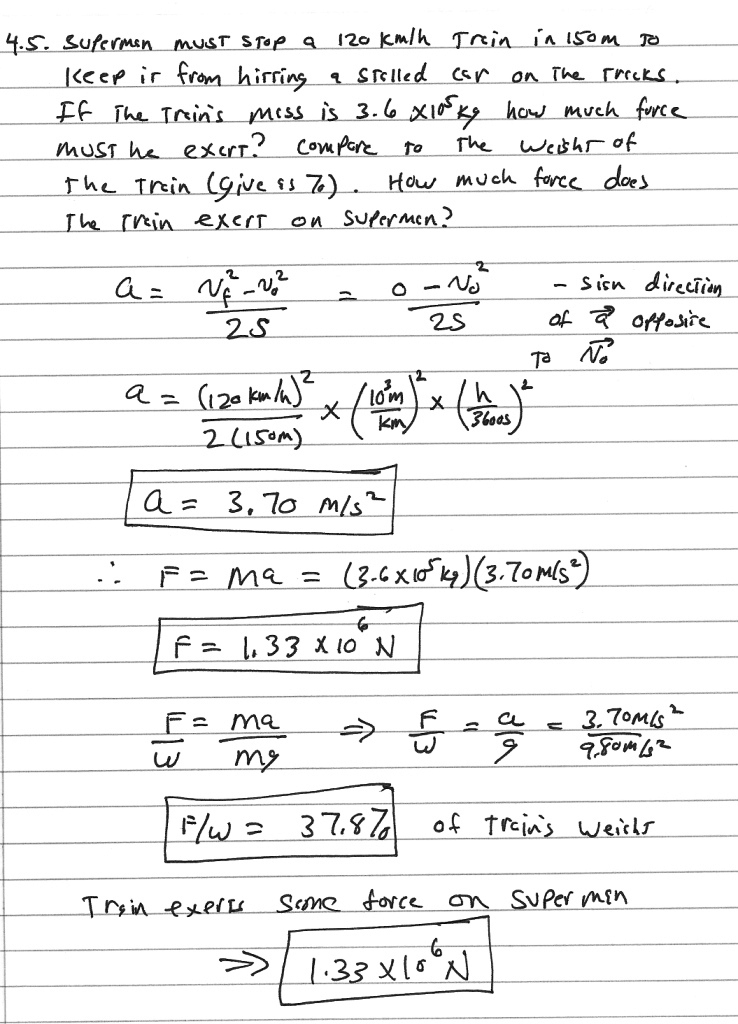 4.5. Superman must stop a 120 km/h train in 150m to
keep it from hitting a stalled car on the tracks.
If the train's mass is 3.6 x10⁵ kg how much force
must he exert? Compare to the weight of
the train (give as %). How much force does
the train exert on Superman?
a = (v_f² - v₀²)/2s = (0 - v₀²)/2s - sign direction
of a⃗ opposite
to v⃗₀
a = (120 km/h)²/2(150m) x (10³m/km)² x (h/3600s)²
a = 3.70 m/s²
∴ F = ma = (3.6 x 10⁵ kg)(3.70 m/s²)
F = 1.33 x 10⁶ N
F/w = ma/mg ⇒ F/w = a/g = 3.70 m/s²/9.80 m/s²
F/w = 37.8% of train's weight
Train exerts same force on Superman
⇒ 1.33 x10⁶ N